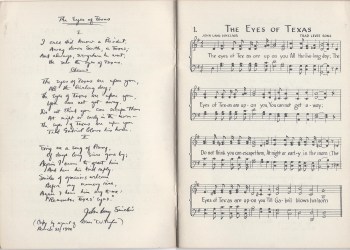 The Eyes of Texas
I.
I once did know a President,
Away down South, in Texas,
And always, everywhere he went,
He saw the Eyes of Texas.
Chorus
The Eyes of Texas are upon you,
All the livelong day;
The Eyes of Texas are upon you,
You can not get away;
Do not think you can escape them
At night or early in the morn—
The Eyes of Texas are upon you
Till Gabriel blows his horn.
II
Sing me a song of Prexy,
Of days long since gone by;
Again I seem to greet him
And hear his kind reply.
Smiles of gracious welcome
Before my memory rise,
Again I hear him say to me:
"Remember Texas' Eyes."
John Lang Sinclair
1.
THE EYES OF TEXAS
JOHN LANG SINCLAIR
The eyes of Tex as are up on you All the live long day; The
Eyes of Tex as are up on you, You can not get a way;
Do not think you can escape them, At night or early in the morn The
Eyes of Tex as are up on you Till Ga briel blows his horn